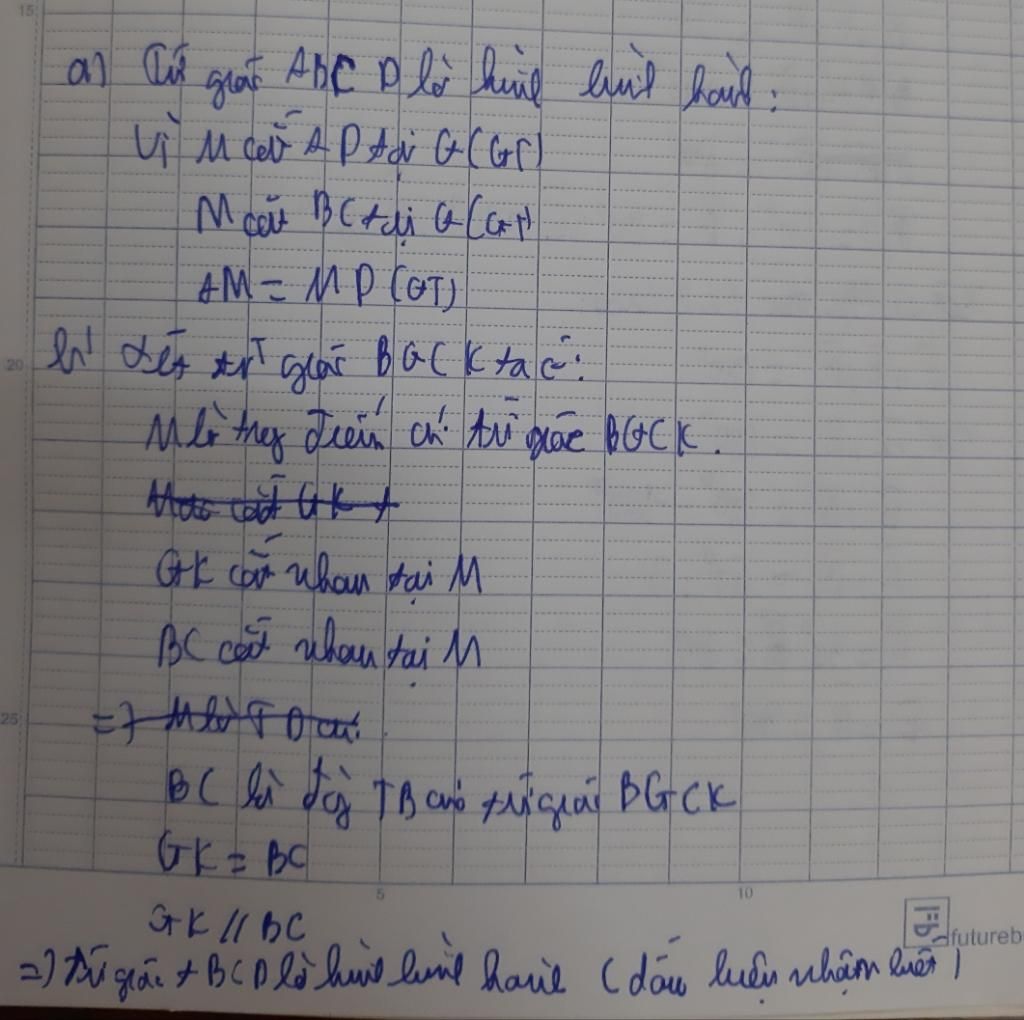 15
a) Tứ giác ABCD là hình bình hành:
Vì M cắt AD tại G (GT)
M cắt BC tại G (GT)
AM = MD (GT)
20
b) Xét tứ giác BGCK ta có:
M là trung điểm của tứ giác BGCK.
M cắt GK t
GK cắt nhau tại M
BC cắt nhau tại M
25
=> M là TĐ của
BC là đg TB của tứ giác BGCK
GK = BC
5 10
GK // BC
futureb
=> tứ giác ABCD là hình bình hành (dấu hiệu nhận biết)